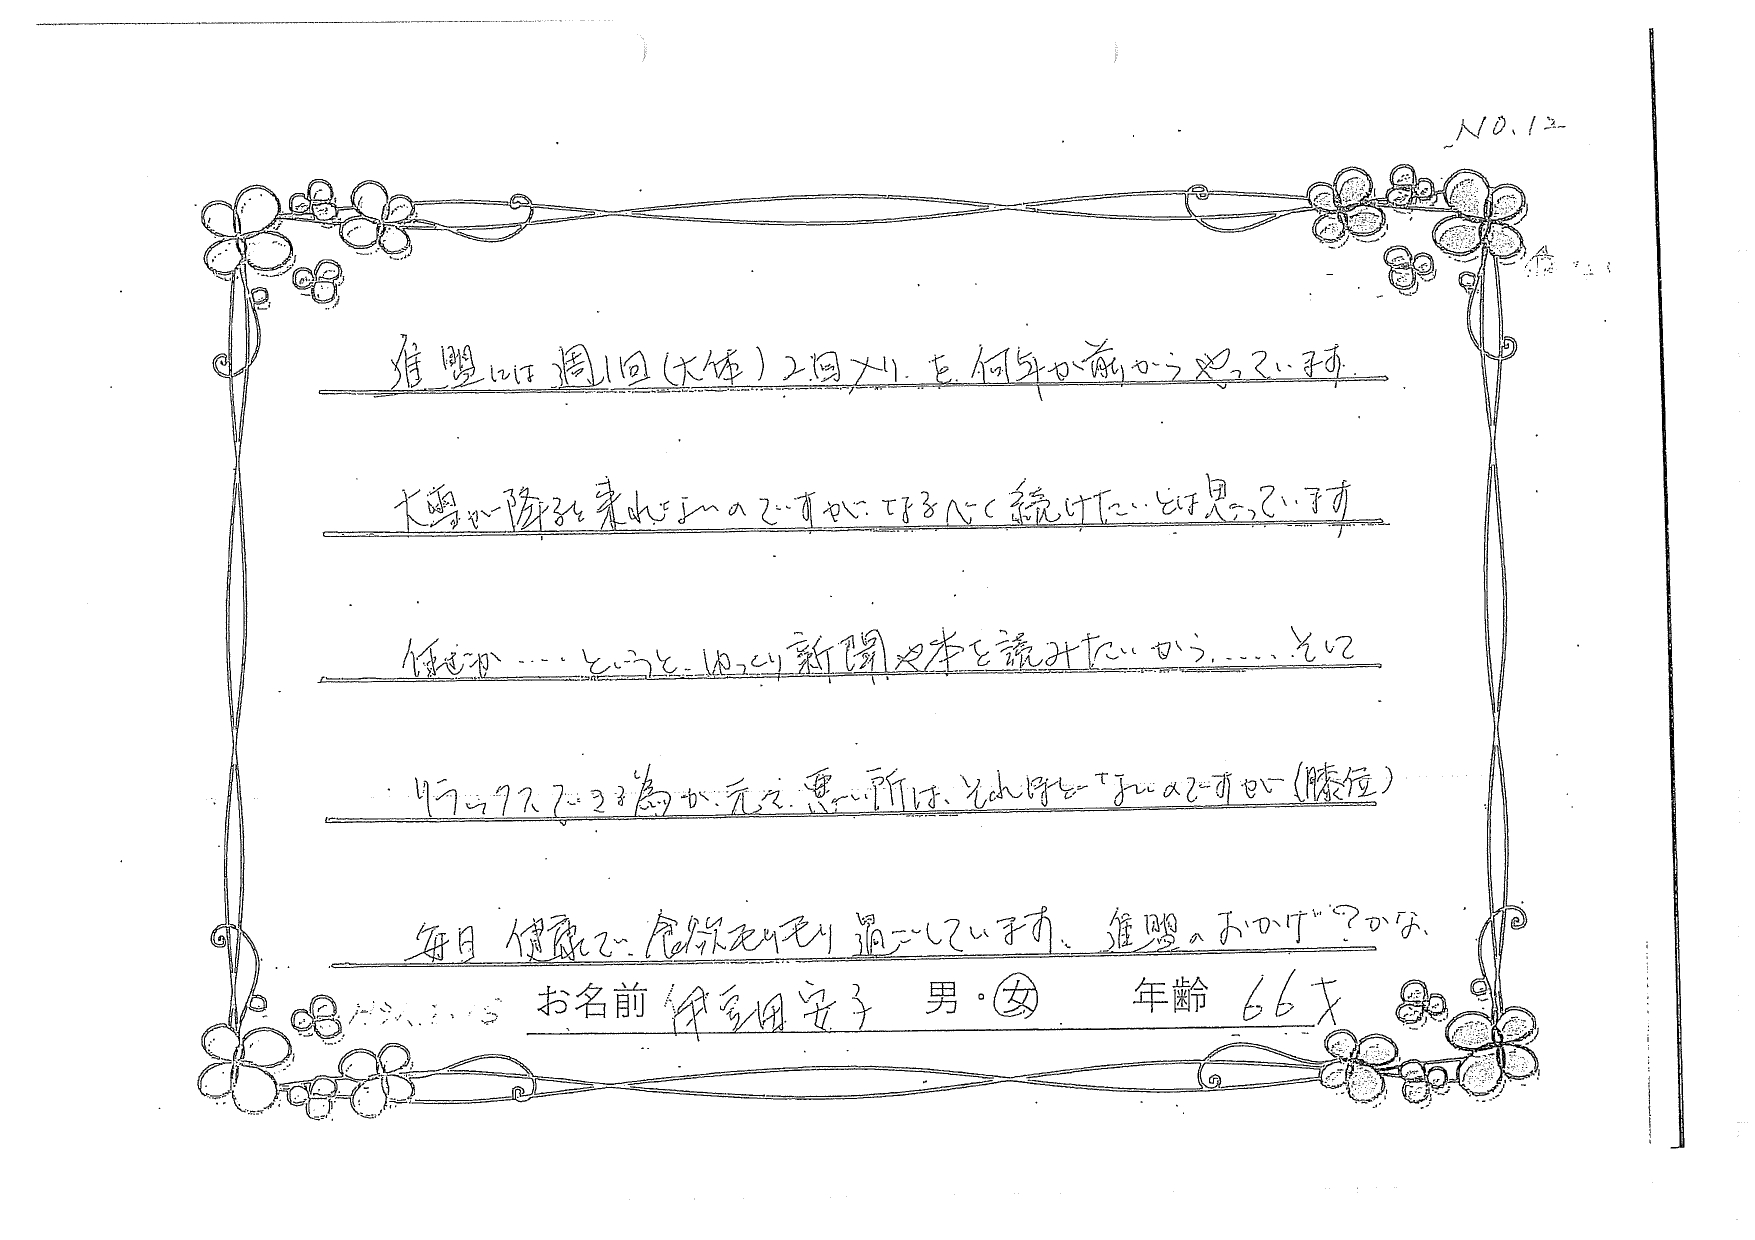 NO.12
進盟には週1回(大体)2回入りを何年か前からやっています.
大雪が降ると来れないのですが なるべく続けたいとは思っています
何せか‥‥というと、ゆっくり新聞や本を読みたいから......そして
リラックスできる為か、元々、悪い所は、それほどーないのですが(膝位)
毎日 健康で、食欲モリモリ過ごしています。進盟のおかげ?かな、
お名前 伊豆田安子 男・女 年齢 66才